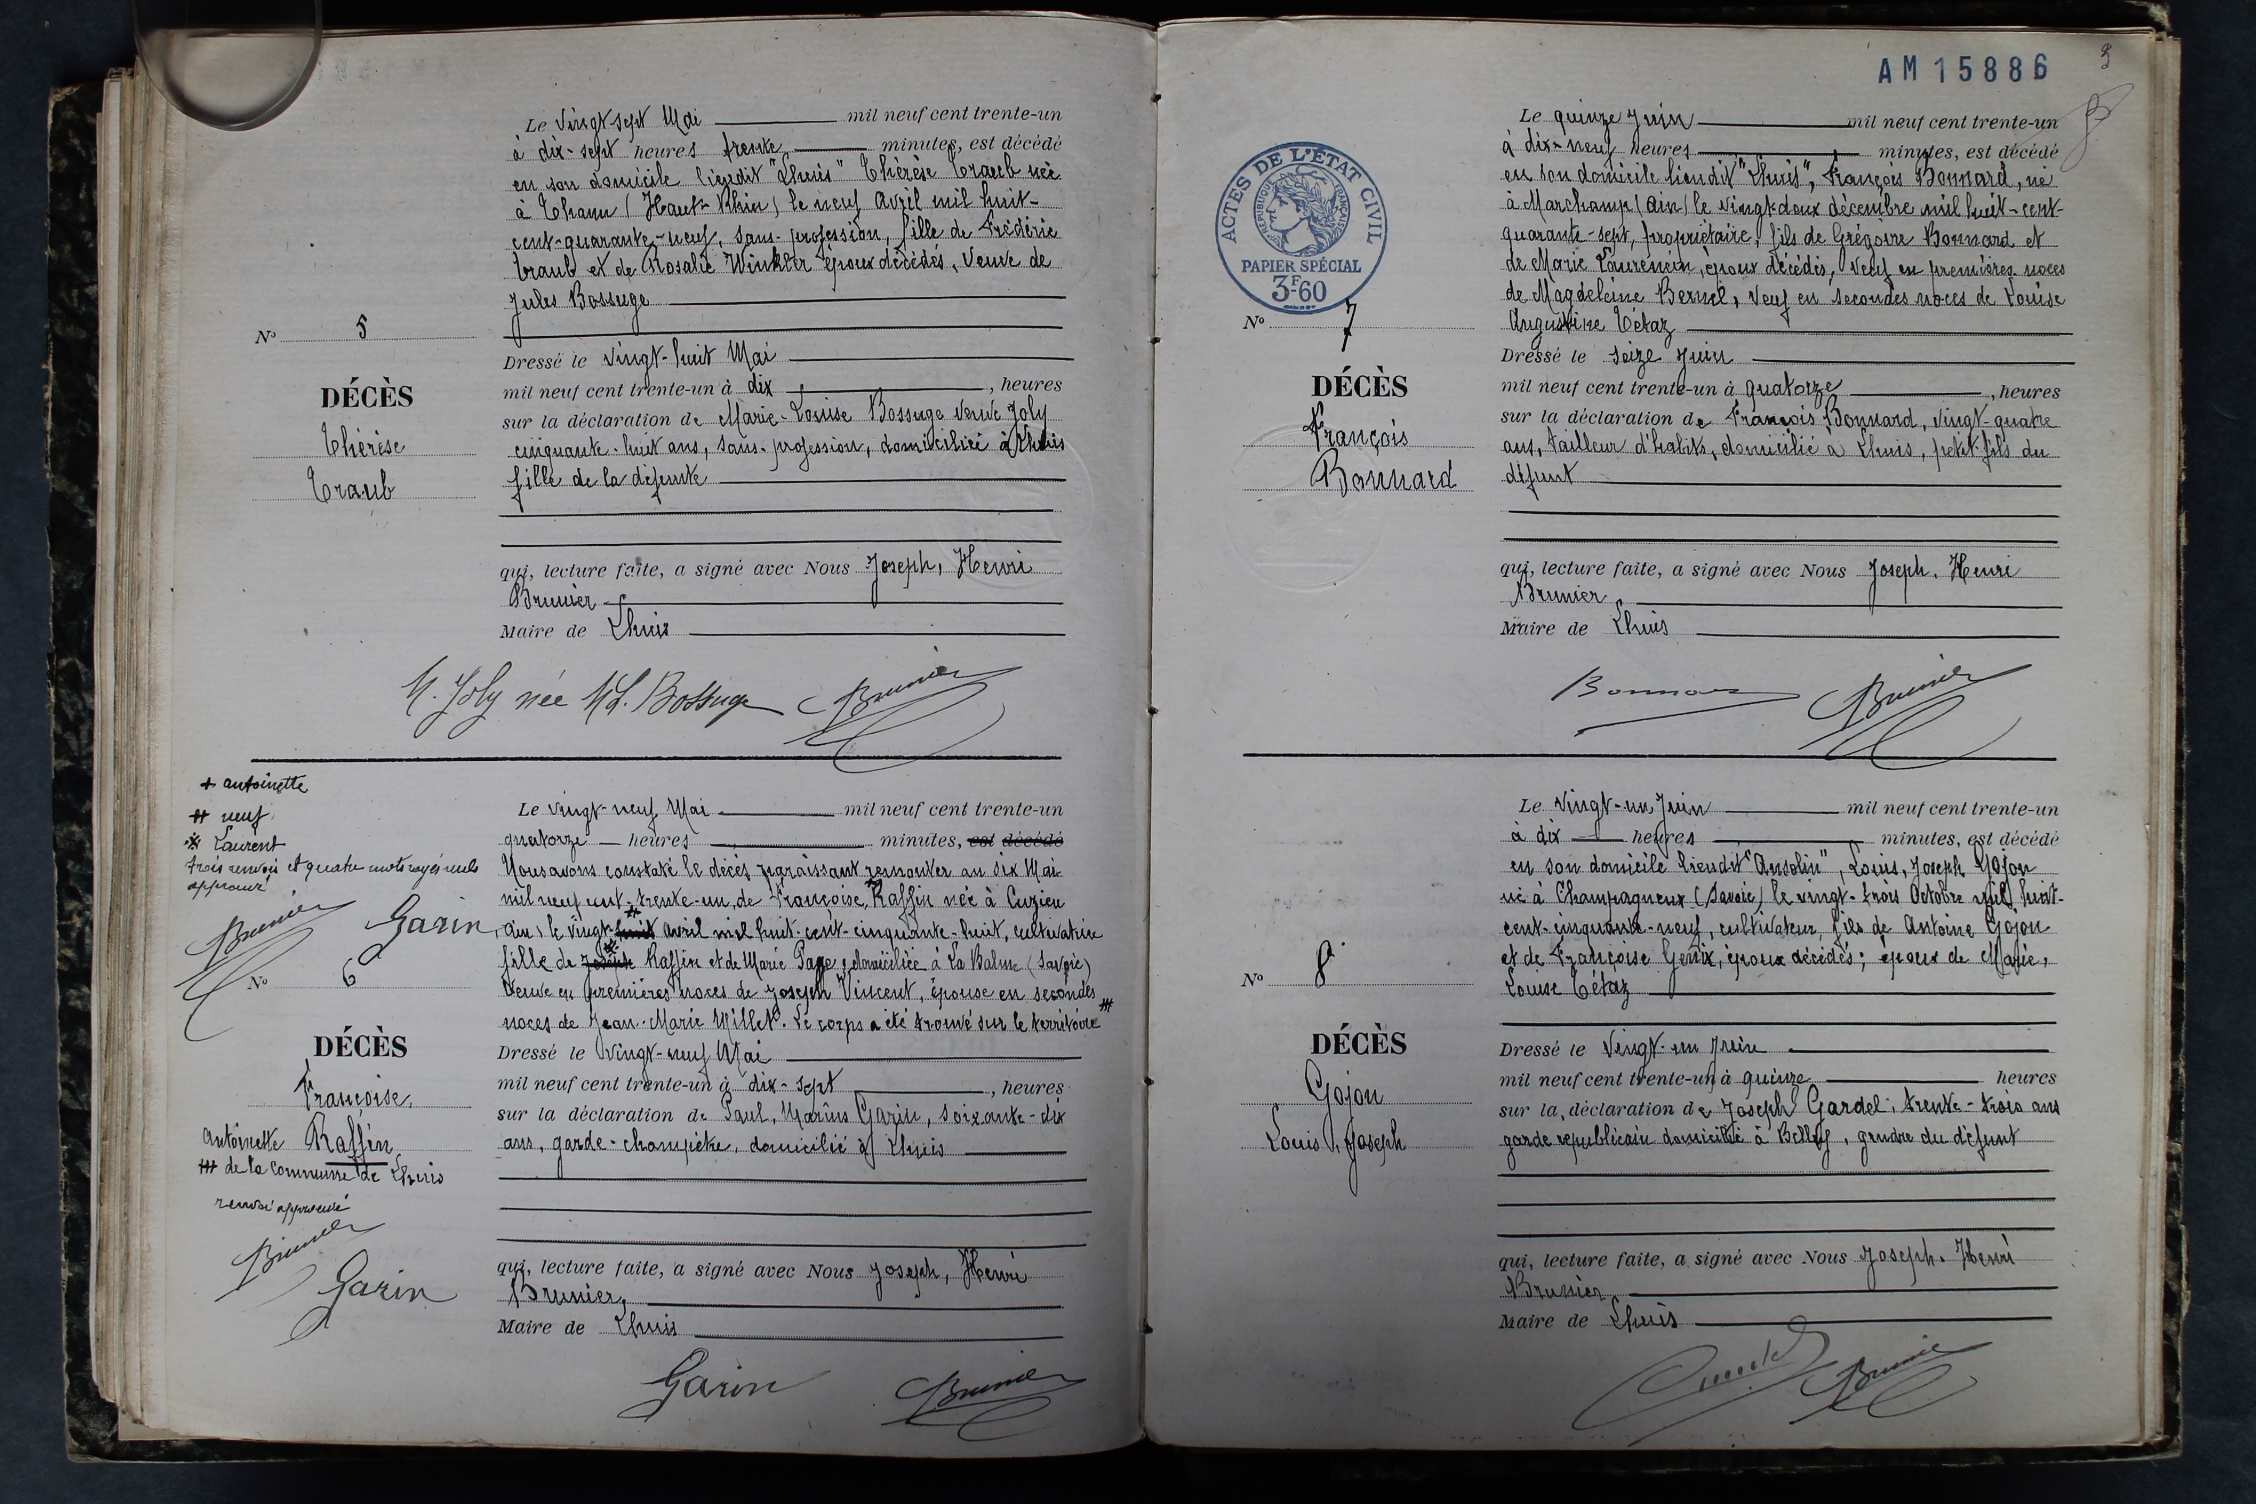 Le vingt-sept Mai mil neuf cent trente-un
à dix-sept heures trente minutes, est décédé
en son domicile lieudit "Lhuis" Thérèse Traub née
à Thann (Haut-Rhin) le neuf Avril mil huit-
cent-quarante-neuf, sans-profession, fille de Frédéric
Traub et de Rosalie Winkler époux décédés, Veuve de
Jules Bossuge
No 5
DÉCÈS
Thérèse
Traub
Dressé le vingt-huit Mai
mil neuf cent trente-un à dix, heures
sur la déclaration de Marie-Louise Bossuge veuve Joly
cinquante-huit ans, sans-profession, domiciliée à Lhuis
fille de la défunte
qui, lecture faite, a signé avec Nous Joseph, Henri
Brunier
Maire de Lhuis
M. Joly née M.L. Bossuge Brunier
+ antoinette
++ neuf
Laurent
trois renvois et quatre mots rayés nuls
approuvé
Brunier Garin
No 6
DÉCÈS
Françoise,
antoinette Raffin
+++ de la commune de Lhuis
renvoi approuvé
Brunier
Garin
Le vingt-neuf Mai mil neuf cent trente-un
quatorze heures minutes, est décédé
Nous avons constaté le décès paraissant remonter au six Mai
mil neuf cent-trente-un, de Françoise, + Raffin née à Cuzieu
Ain, le vingt-huit ++ avril mil huit-cent-cinquante-huit, cultivatrice
fille de Joseph Raffin et de Marie Page, domiciliée à La Balme (Savoie)
Veuve en premières noces de Joseph Vincent, épouse en secondes
noces de Jean-Marie Millet. Le corps a été trouvé sur le territoire +++
Dressé le vingt-neuf Mai
mil neuf cent trente-un à dix-sept, heures
sur la déclaration de Paul, Marius Garin, soixante-dix
ans, garde-champêtre, domicilié à Lhuis
qui, lecture faite, a signé avec Nous Joseph, Henri
Brunier,
Maire de Lhuis
Garin Brunier
AM 15886
3
ACTES DE L'ÉTAT CIVIL
RÉPUBLIQUE FRANÇAISE
PAPIER SPÉCIAL
3F60
Le quinze Juin mil neuf cent trente-un
à dix-neuf heures minutes, est décédé
en son domicile lieudit "Lhuis", François Bonnard, né
à Marchamp (Ain) le vingt-deux décembre mil huit-cent-
quarante-sept, propriétaire, fils de Grégoire Bonnard et
de Marie Laurencin, époux décédés, Veuf en premières noces
de Magdeleine Bernel, Veuf en secondes noces de Louise
Augustine Tétaz
No 7
DÉCÈS
François
Bonnard
Dressé le seize Juin
mil neuf cent trente-un à quatorze, heures
sur la déclaration de François Bonnard, vingt-quatre
ans, tailleur d'habits, domicilié à Lhuis, petit-fils du
défunt
qui, lecture faite, a signé avec Nous Joseph. Henri
Brunier
Maire de Lhuis
Bonnard Brunier
Le vingt-un Juin mil neuf cent trente-un
à dix heures minutes, est décédé
en son domicile lieudit "Ansolin", Louis, Joseph Gojon
né à Champagneux (Savoie) le vingt-trois Octobre mil huit-
cent-cinquante-neuf, cultivateur, fils de Antoine Gojon
et de Françoise Genix, époux décédés; époux de Marie,
Louise Tétaz
No 8
DÉCÈS
Gojon
Louis, Joseph
Dressé le vingt-un Juin
mil neuf cent trente-un à quinze heures
sur la déclaration de Joseph Gardel, trente-trois ans
garde républicain domicilié à Belley, gendre du défunt
qui, lecture faite, a signé avec Nous Joseph. Henri
Brunier
Maire de Lhuis
Brunier